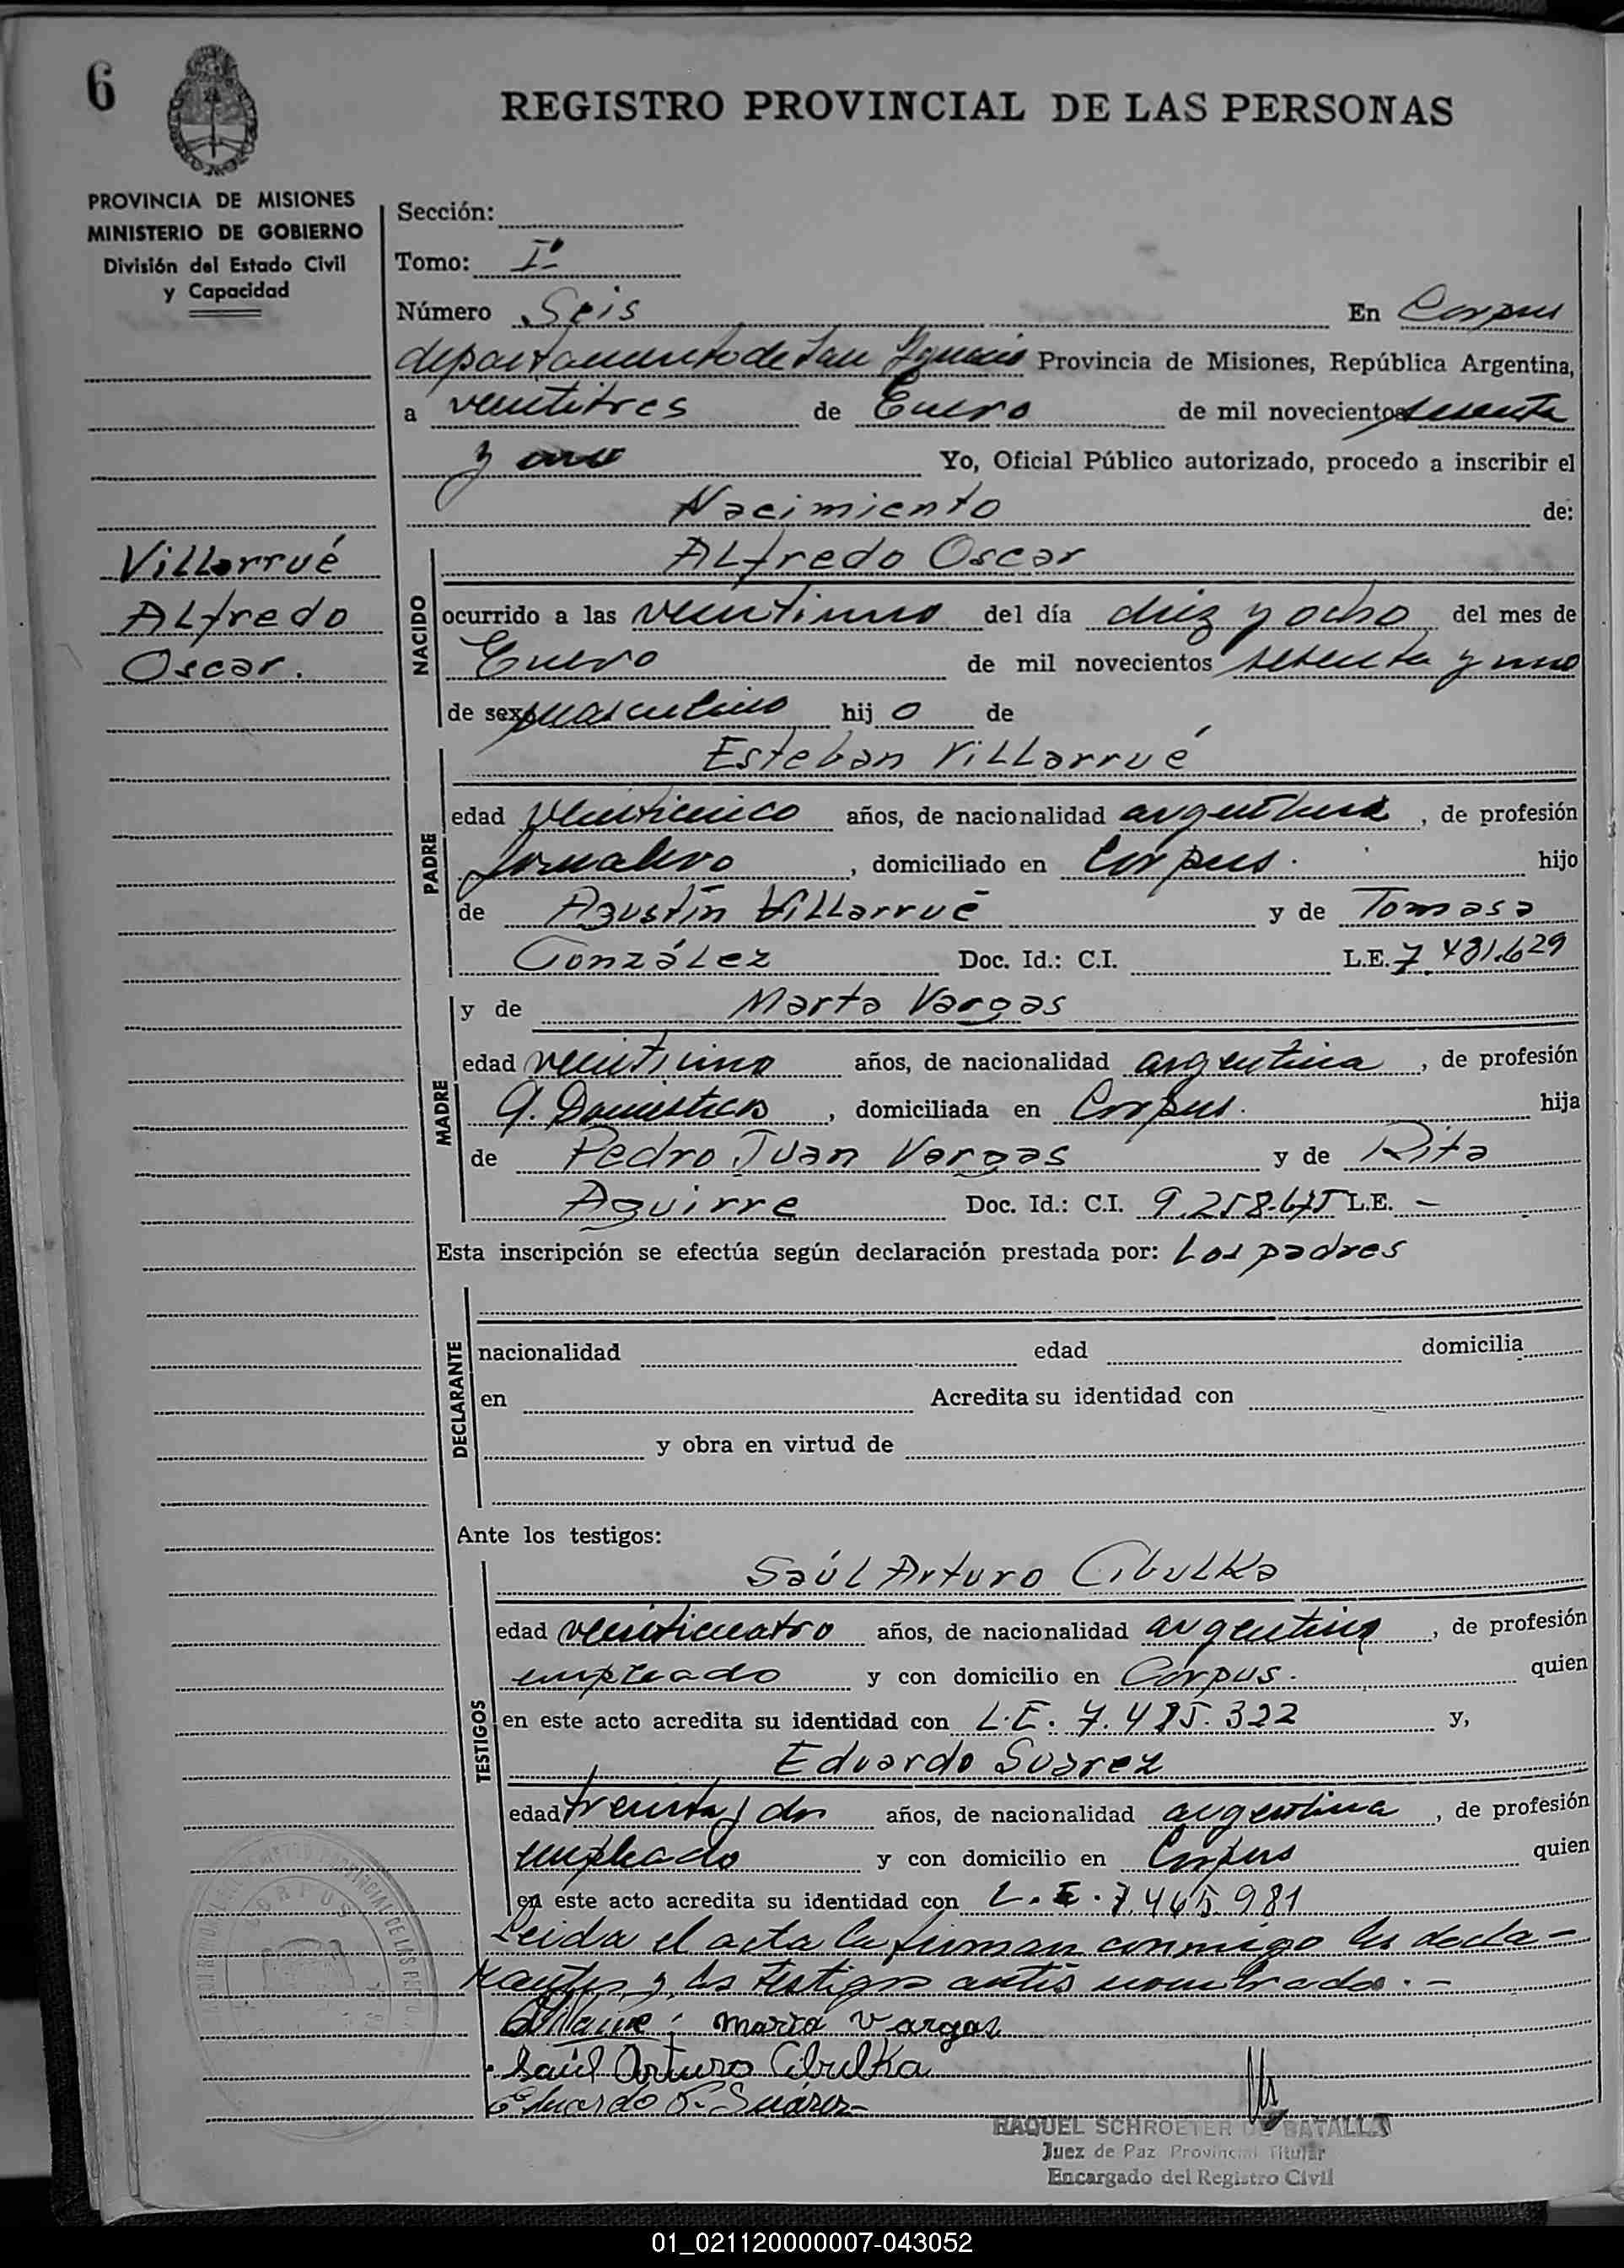 6
REGISTRO PROVINCIAL DE LAS PERSONAS
PROVINCIA DE MISIONES
MINISTERIO DE GOBIERNO
División del Estado Civil
y Capacidad
Sección:
Tomo: Iº
Número Seis En Corpus
departamento de San Ignacio Provincia de Misiones, República Argentina,
a veintitres de Enero de mil novecientos setenta
y uno Yo, Oficial Público autorizado, procedo a inscribir el
Nacimiento de:
Villarrué
Alfredo
Oscar.
NACIDO
Alfredo Oscar
ocurrido a las veintiuno del día diez y ocho del mes de
Enero de mil novecientos setenta y uno
de sexo masculino hijo de
PADRE
Esteban Villarrué
edad veinticinco años, de nacionalidad argentina, de profesión
Jornalero, domiciliado en Corpus. hijo
de Agustín Villarrué y de Tomasa
González Doc. Id.: C.I. L.E. 7.431.629
MADRE
y de Marta Vargas
edad veintiuno años, de nacionalidad argentina, de profesión
Q. Domésticos, domiciliada en Corpus. hija
de Pedro Juan Vargas y de Rita
Aguirre Doc. Id.: C.I. L.E. -
Esta inscripción se efectúa según declaración prestada por: Los padres
DECLARANTE
nacionalidad edad domicilia
en Acredita su identidad con
y obra en virtud de
Ante los testigos:
TESTIGOS
Saúl Arturo Cibulka
edad veinticuatro años, de nacionalidad argentina, de profesión
empleado y con domicilio en Corpus. quien
en este acto acredita su identidad con L.E. 7.485.322 y,
Eduardo Suarez
edad treinta y dos años, de nacionalidad argentina, de profesión
empleado y con domicilio en Corpus quien
en este acto acredita su identidad con L.E. 7.465.981
Leida el acta la firman conmigo los decla-
rantes y los testigos antes nombrados.-
Marta Vargas
Saúl Arturo Cibulka
Eduardo F. Suárez
CORPUS
RAQUEL SCHROETER DE BATALLA
Juez de Paz Provincial Titular
Encargado del Registro Civil
01_021120000007-043052